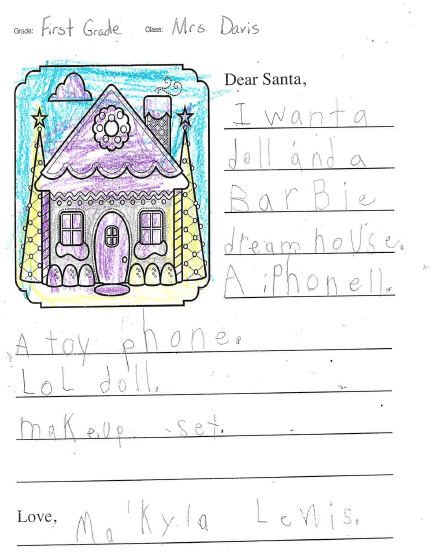 Grade: First Grade Class: Mrs. Davis
Dear Santa,
I want a
doll and a
BarBie
dream house.
A iPhone11.
A toy phone.
LoL doll.
makeup set.
Love, Ma'Kyla Lewis.